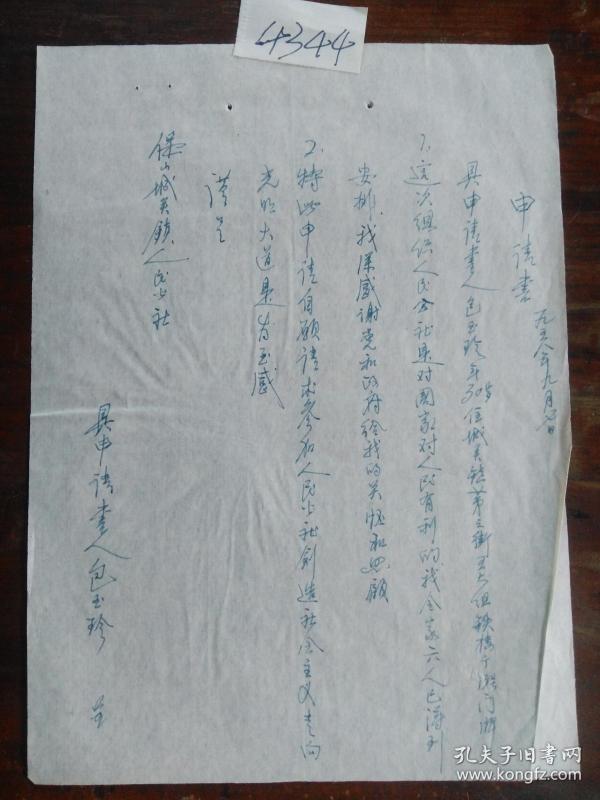 4344
申请书
一九五八年九月
具申请书人包玉珍年30岁住城关镇第三街
1、这次组织人民公社是对国家对人民有利的我全家六人已得到
安排、我深感谢党和政府给我的关怀和照顾
2、特此申请自愿请求参加人民公社创造社会主义走向
光明大道是为至感
谨呈
保山城关镇人民公社
具申请书人包玉珍 呈
孔夫子旧书网
www.kongfz.com